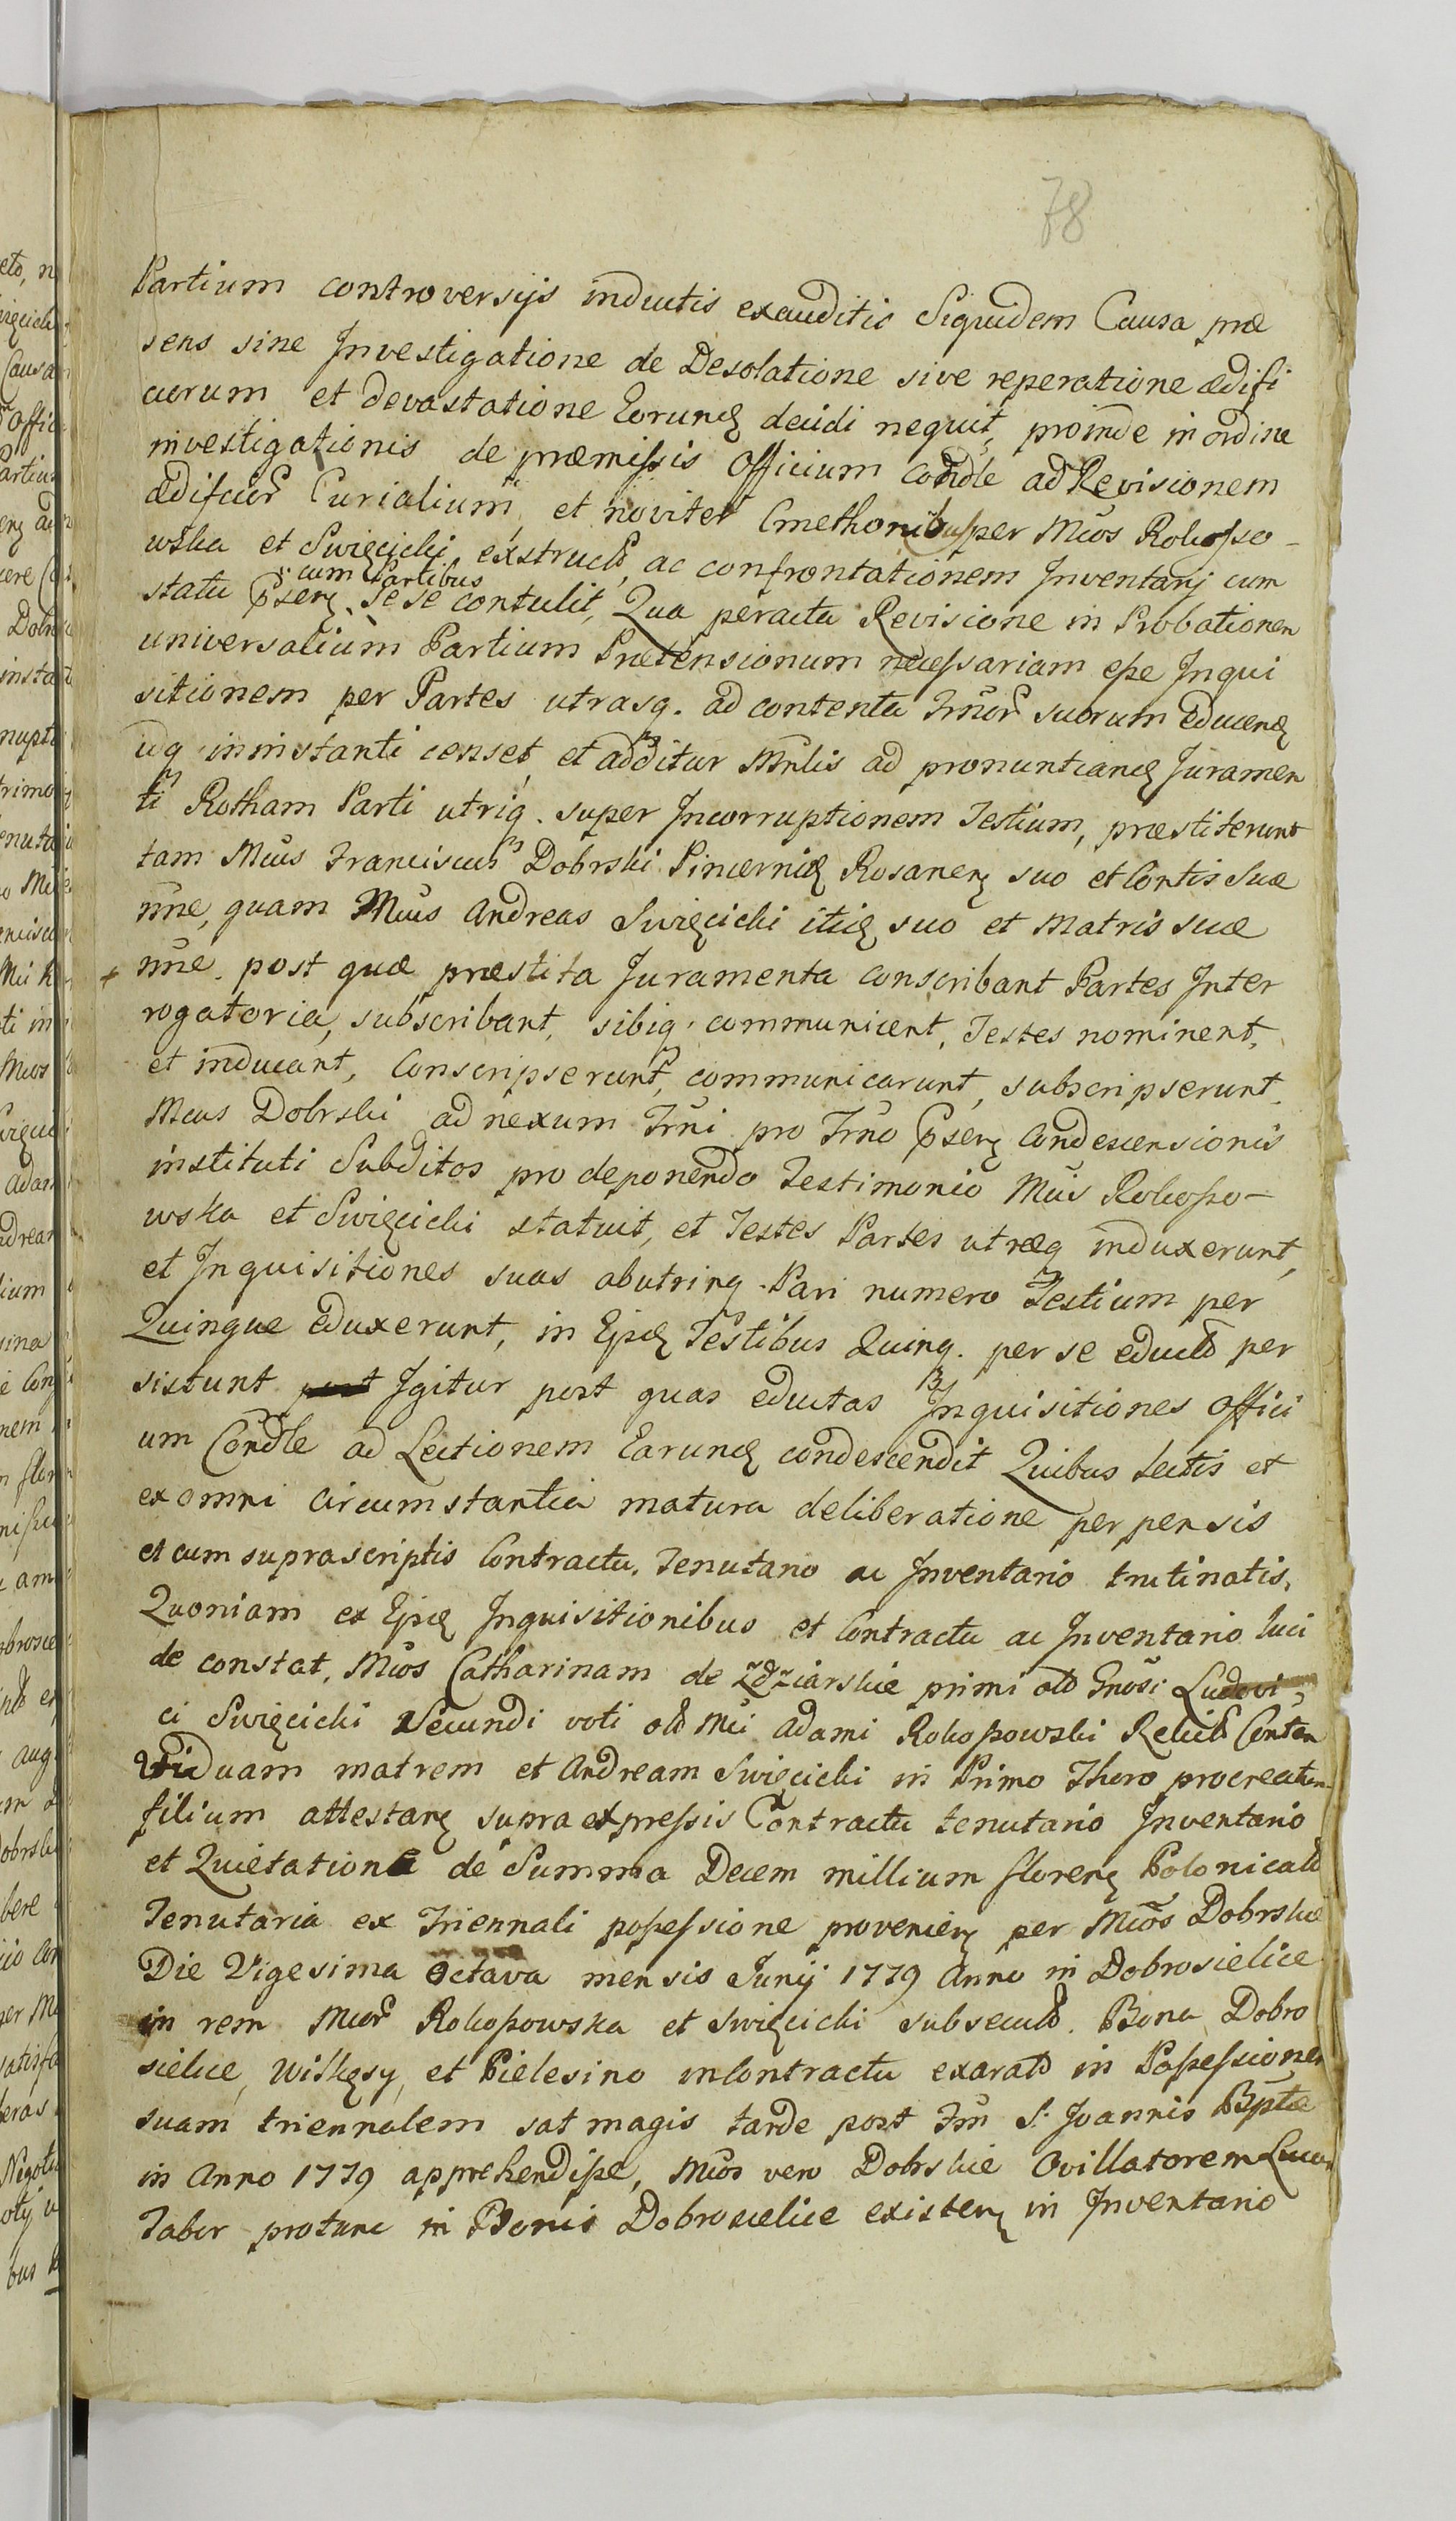 78
Partium controversijs inductis exauditis Siquidem Causa præ
sens sine Investigatione de Desolatione sive reperatione ædifi
ciorum et devastatione Eorund decidi nequit, proinde in ordine
investigationis de præmissis Officium Condle ad Revisionem
ædificior Curialium, et noviter Cmethonibus per Mcos Rokosso-
wska et Swięcicki exstruct, ac confrontationem Inventarij cum
cum Partibus
statu Pseñ sese contulit, Qua peracta Revisione in Probationem
universalium Partium Prætensionum necessariam esse Inqui
sitionem per Partes utrasq. ad contenta Trnor suorum educend
idq in instanti censet, et additur Mrlis ad pronuntiand Juramen
ti Rotham Parti utriq. super Incorruptionem Testium, præstiterunt
tam Mcus Franciscus Dobrski Pincernid Rosanen suo et Contis Suæ
nne, quam Mcus Andreas Swięcicki itid suo et Matris suæ
nne. post quæ præstita Juramenta conscribant Partes Inter
rogatoria, subscribant, sibiq. communicent, Testes nominent,
et inducant, Conscripserunt, communicarunt, subscripserunt.
Mcus Dobrski ad nexum Trni pro Trno Psen Condescensionis
instituti Subditos pro deponendo Testimonio Mcus Rokosso-
wska et Swięcicki statuit, et Testes Partes utræq induxerunt,
et Inquisitiones suas abutrinq. Pari numero Testium per
Quinque eduxerunt, in Ejsd Testibus Quinq. per se educt per
sistunt Igitur post quas eductas Inquisitiones Offici
um Condle ad Lectionem Earund condescendit Quibus lectis et
ex omni circumstantia matura deliberatione perpensis
et cum suprascriptis Contractu, Tenutario ac Inventario trutinatis,
Quoniam ex Ejsd Inquisitionibus et Contractu ac Inventario luci
de constat, Mcos Catharinam de Zdziarskie primi olb Gnosi Ludovi-
ci Swięcicki Secundi voti olb Mci Adami Rokossowski Relict Conten
Viduam matrem et Andream Swięcicki in Primo Thoro procreatum
filium attestan supra expressis Contractu tenutario Inventario
et Quietatione de Summa Decem millium floren Polonicalb
Tenutaria ex Triennali possessione provenien per Mcos Dobrskie
Die Vigesima Octava mensis Junij 1779 Anno in Dobrosielice
in rem Mcor Rokossowska et Swięcicki subsecut. Bona Dobro
sielice, Wilkęsy, et Pielesino in Contractu exarat in Possessionem
suam triennalem sat magis tarde post Fm S. Joannis Bptæ
in Anno 1779 apprehendisse, Mcos vero Dobrskie Ovillatorem Lucam
Tabor protunc in Bonis Dobrosielice existen in Inventario